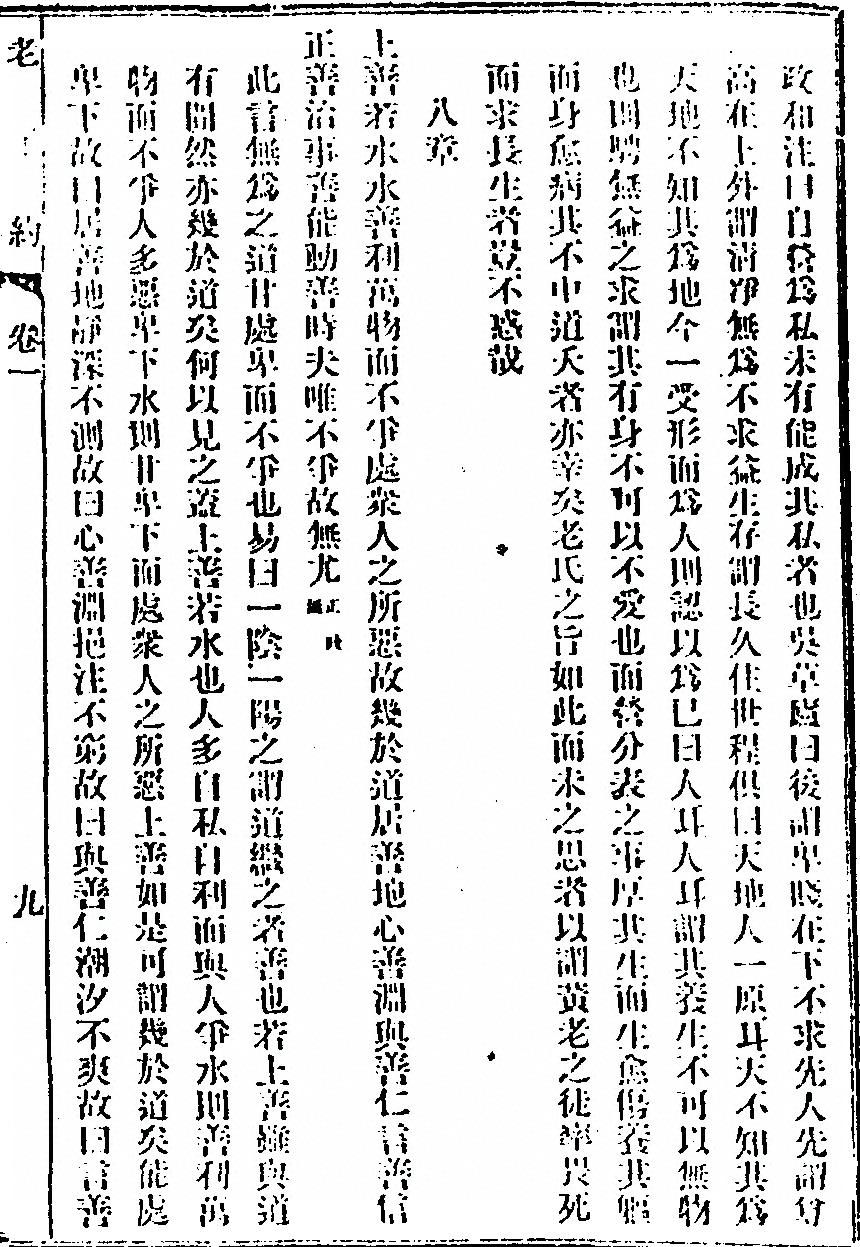 政和注曰自營爲私未有能成其私者也吳草廬曰後謂卑賤在下不求先人先謂尊
高在上外謂清凈無爲不求益生存謂長久住世程俱曰天地人一原耳天不知其爲
天地不知其爲地今一受形而爲人則認以爲己曰人耳人耳謂其養生不可以無物
也則騁無益之求謂其有身不可以不愛也而營分表之事厚其生而生愈傷養其軀
而身愈病其不中道夭者亦幸矣老氏之旨如此而未之思者以謂黃老之徒率畏死
而求長生者豈不惑哉
八章
上善若水水善利萬物而不爭處衆人之所惡故幾於道居善地心善淵與善仁言善信
正善治事善能動善時夫唯不爭故無尤
此言無爲之道甘處卑而不爭也易曰一陰一陽之謂道繼之者善也若上善雖與道
有間然亦幾於道矣何以見之蓋上善若水也人多自私自利而與人爭水則善利萬
物而不爭人多惡卑下水則甘卑下而處衆人之所惡上善如是可謂幾於道矣能處
卑下故曰居善地靜深不測故曰心善淵挹注不窮故曰與善仁潮汐不爽故曰言善
老 約 卷一
九